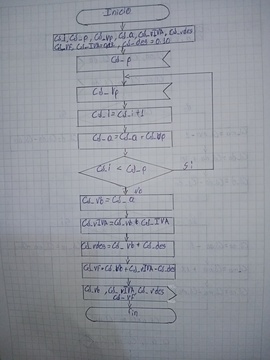 Inicio
Cd_i, Cd_p, Cd_vp, Cd_a, Cd_vIVA, Cd_vdes
Cd_vF, Cd_IVA= , Cd_des = 0.10
Cd_p
Cd_vp
Cd_i = Cd_i+1
Cd_a = Cd_a + Cd_vp
Cd_i < Cd_p
Si
No
Cd_vb = Cd_a
Cd_vIVA = Cd_vb * Cd_IVA
Cd_vdes = Cd_vb * Cd_des
Cd_vF = Cd_vb + Cd_vIVA - Cd_des
Cd_vb, Cd_vIVA, Cd_vdes
Cd_vF
Fin